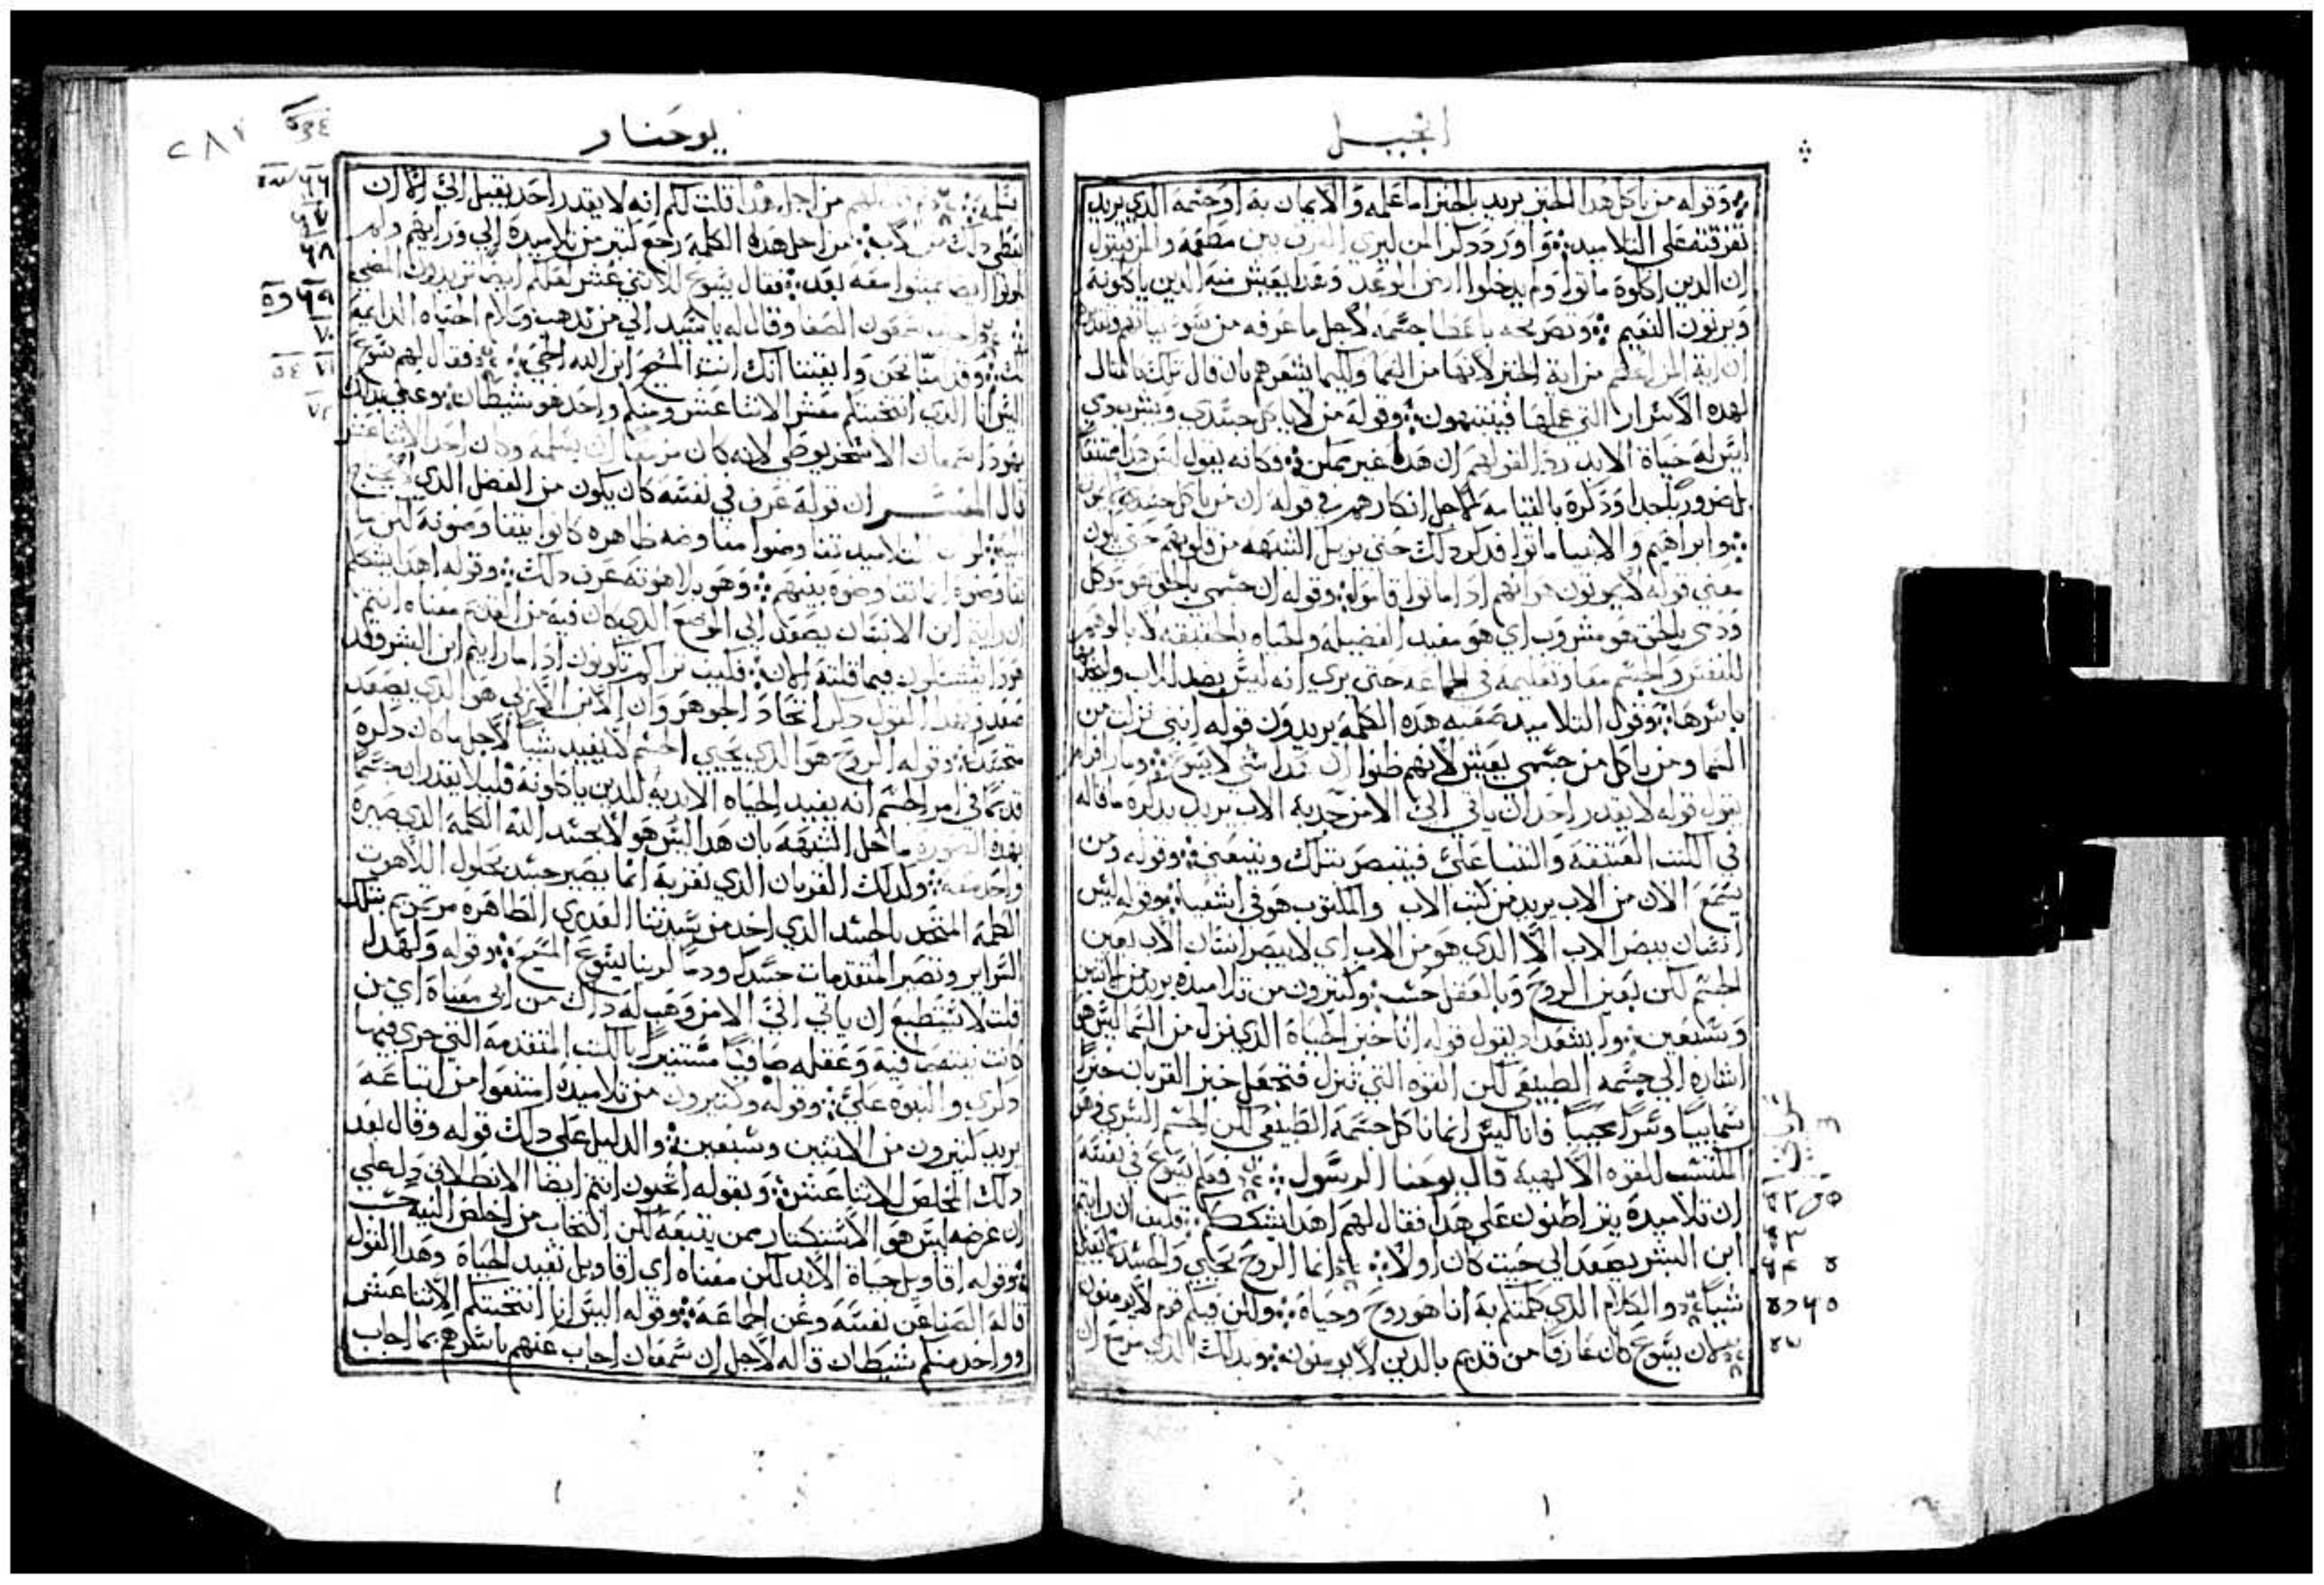 انجيل
وقوله من ياكل هدا الخبز يريد بالخبز اما علمه والايمان به او جسمه الدي يريد
تفرقته على التلاميد واورد دكر المن ليري الفرق بين مطعمه والمن
ان الدين اكلوه ماتوا ولم يدخلوا ارض الوعد وهدا يعيش منه الدين ياكلونه
ويرتون النعيم وتصريحه باعطا جسمه لاجل ما عرفه من
ان اية المن اعظم من اية الخبز لانها من السما وكيما يشعرهم بان قال تلك بالمثال
لهده الاسرار التي عملها فينتبهون وقوله من لا ياكل جسدي ويشرب دمي
ليس له حياة الابد رد القولهم ان هدا غير ممكن وكانه يقول ليس هدا ممتنعا
بل ضروريا جدا ودكره بالقيامه لاجل انكارهم في قوله ان من ياكل جسدي
وابراهيم والانبيا ماتوا فدكر دلك حتى يزيل الشبهه من قلوبهم حتي يكون
معني قوله لا يموتون هو انهم ادا ماتوا قاموا وقوله ان جسمي بالحق هو مأكل
ودمي بالحق هو مشروب اي هو مفيد الفضيله والحياه بالحقيقه لا بالوهم
للنفس والجسم معا وتعليمه في الجماعه حتى يري انه ليس بضد الاب
باسرها وقول التلاميد صعبه هده الكلمه يريدون قوله انني نزلت من
السما ومن ياكل من جسمي يعيش لانهم ظنوا ان هدا شي لا يسوغ ومار افرام
يقول قوله لا يقدر احد ان ياتي الي الا من جدبه الاب يريد بدكره ما قاله
في الكتب العتيقه والثنا علي فيتبصر بتلك ويتبعني وقوله ومن
يسمع الان من الاب يريد من كتب الاب والمكتوب هو في اشعيا وقوله ليس
انسان يبصر الاب الا الدي هو من الاب اي لا يبصر انسان الاب بعين
الجسم لكن بعين الروح وبالعقل حسب وكثيرون من تلاميده يريد من اثنين
وسبعين ولا يعتقد ان يقول قوله انا خبز الحياة الدي نزل من السما ليس هو
اشاره الي جسمه الطبيعي لكن القوه التي تنزل فتجعل خبز القربان خبزا
سمائيا وسرا عجيبا فانا ليس انما ناكل جسمه الطبيعي لكن الجسم السري وهو
المكتسب القوه الالهيه قال يوحنا الرسول فعلم يسوع في نفسه
ان تلاميده يتراطنون على هدا فقال لهم اهدا يشككم فكيف ان رايتم
ابن البشر يصعد الى حيث كان اولا انما الروح تحيي والجسد لا يفيد
شيا والكلام الدي كلمتكم به انا هو روح وحياة ولكن فيكم قوم لا يومنون
لان يسوع كان عارفا من قديم بالدين لا يومنون وبدلك الدي مزمع ان
يوحنا
٢٨٢
يسلمه وقال لهم من اجل هدا قلت لكم انه لا يقدر احد يقبل الي الا ان
يعطى دلك من الاب من اجل هده الكلمة رجع كثير من تلاميده الي ورايهم ولم
يكونوا ايضا يمشوا معه بعد فقال يسوع للاثني عشر لعلكم ايضا تريدون المضي
اجاب سمعون الصفا وقال له يا سيد الي من ندهب وكلام الحياه الدايمة
لك وقد امنا نحن وايقننا انك انت المسيح ابن الله الحي فقال لهم يسوع
اليس انا الدي انتخبتكم معشر الاثنا عشر ومنكم واحد هو شيطان وعني بدلك
يهودا سمعان الاسخريوطي لانه كان مزمعا ان يسلمه وكان احد الاثنا عشر
قال المفسر ان قوله عرف في نفسه كان يكون من الفضل الدي لا يحتاج
اليه لو ان التلاميد تفاوضوا مفاوضه ظاهره كانوا يتفاوضونه لكن ما
تفاوضوه انما تفاوضوه بينهم وهو بلاهوته عرف دلك وقوله اهدا يشككم
ان رايتم ابن الانسان يصعد الى الموضع الدي كان فيه من القديم معناه انتم
فيما قلته الان فكيف تراكم تكونون ادا ما رايتم ابن البشر وقد
صعد وبهدا القول دكر اتحاد الجوهر وان الابن الازلي هو الدي يصعد
متجسدا وقوله الروح هو الدي يحيي الجسم لا يفيد شيا لاجل ما كان دكره
قديما في امر الجسم انه يفيد الحياه الابديه للدين ياكلونه فليلا يقدر
بهده الصورة ما حل الشبهه بان هدا ليس هو الا بجسد الله الكلمة الدي صيره
واحد معه ولدلك القربان الدي نقربه انما يصير جسد بحلول اللاهوت
الكلمة المتحد بالجسد الدي اخد من سيدتنا العدري الطاهره مرتمريم بتلك
السراير وتصير المتقدمات جسدا ودما لربنا يسوع المسيح وقوله ولهدا
قلت لا يستطيع ان ياتي الي الا من وهب له داك من ابي معناه اي من
كانت نيته صافية وعقله صافيا مستنيرا بالكتب المتقدمة التي جري فيها
دكري والنبوه علي وقوله وكثيرون من تلاميده امتنعوا من اتباعه
يريد كثيرون من الاثنين وسبعين والدليل على دلك قوله وقال بعد
دلك المخلص للاثنا عشر وبقوله اتحبون انتم ايضا الانطلاق دل على
ان غرضه ليس هو الاستكثار ممن يتبعه لكن انتخاب من اخلص النيه حسب
وقوله اقاويل حياة الابد لكن معناه اي اقاويل تفيد الحياة وهدا القول
قاله الصفا عن نفسه وعن الجماعه وقوله اليس انا انتخبتكم الاثنا عشر
وواحد منكم شيطان قاله لاجل ان سمعان اجاب عنهم باسرهم بما اجاب